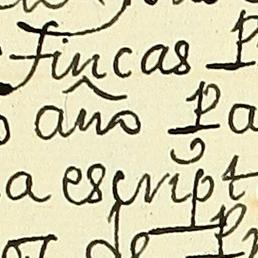 Fincas P
año Pa
a escript
de P